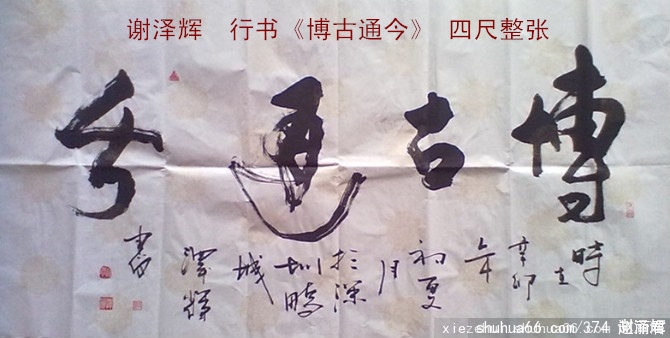 谢泽辉 行书《博古通今》 四尺整张
博古通今
時在
辛卯
年
初夏
月
於深
圳鹏
城
澤輝
書
shuhua66.com/374 谢泽辉